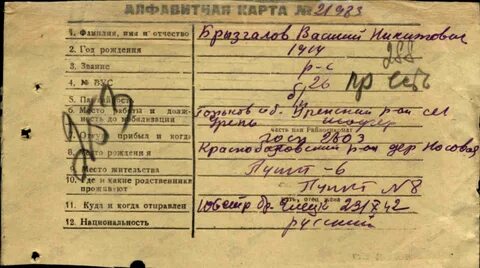 АЛФАВИТНАЯ КАРТА № 21983
1. Фамилия, имя и отчество Брызгалов Василий Никитович
2. Год рождения 1914
288
3. Звание р-с
4. № ВУС 26 пр есть
5. Партийность б/п
6. Место работы и должность до мобилизации Горьков об. Уренский р-он сел
часть или Райвоенкомат
7. Откуда прибыл и когда госп 2603
8. Место рождения Краснобаковский р-он дер Носовая
9. Место жительства Пункт - 6
10. Где и какие родственники проживают Пункт № 8
часть, отец, жена
11. Куда и когда отправлен 106 стр бр. Елецк 23/7 42
12. Национальность русский
253